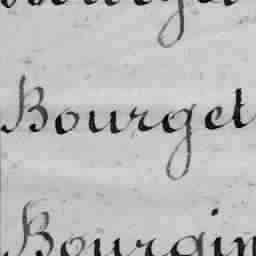 Bourget
Bourgin